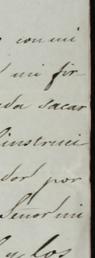 con mi
mi fir
da sacar
instruci
dor por
Señor mi
y los